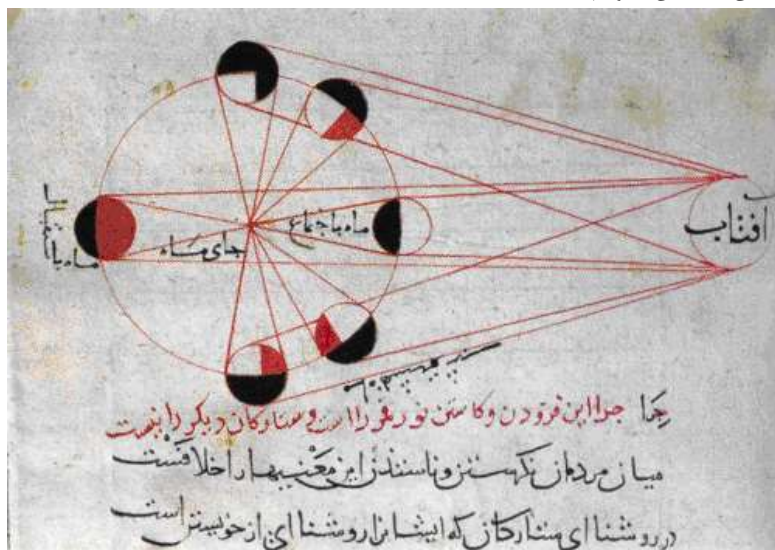 افتاب
ماه باجتماع
جای ماه
چرا این فزودن و کاستن نور قمر را است و ستارکان دیکر را نیست
میان مردمان نکرستن و ناسندن این معنیها را خلافست
در روشنا ای ستارکان که ایشانرا روشنا ای از خویشتن است